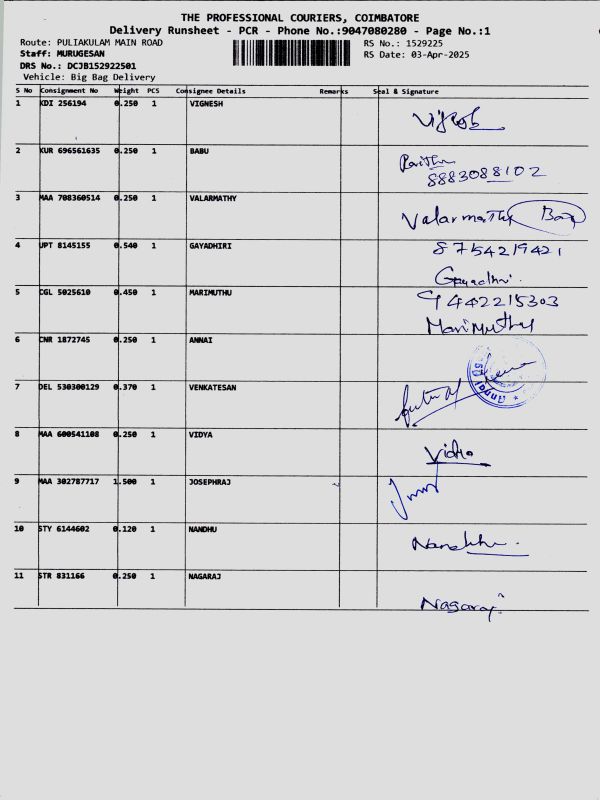 THE PROFESSIONAL COURIERS, COIMBATORE
Delivery Runsheet - PCR - Phone No.:9047080280 - Page No.:1
Route: PULIAKULAM MAIN ROAD RS No.: 1529225
Staff: MURUGESAN RS Date: 03-Apr-2025
DRS No.: DCJB152922501
Vehicle: Big Bag Delivery
S No Consignment No Weight PCS Consignee Details Remarks Seal & Signature
1 KDI 256194 0.250 1 VIGNESH
2 KUR 696561635 0.250 1 BABU
8883088102
3 MAA 708360514 0.250 1 VALARMATHY
Valarmathy
4 UPT 8145155 0.540 1 GAYADHIRI 8754219421
Gayadhri.
5 CGL 5025610 0.450 1 MARIMUTHU 9442215303
Marimuthu
6 CNR 1872745 0.250 1 ANNAI
7 DEL 530300129 0.370 1 VENKATESAN
8 MAA 600541108 0.250 1 VIDYA
Vidya
9 MAA 302787717 1.500 1 JOSEPHRAJ
10 STY 6144602 0.120 1 NANDHU
Nandhu.
11 STR 831166 0.250 1 NAGARAJ
Nagaraj